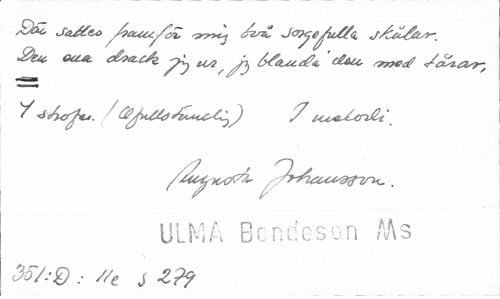 Där sattes framför mig två sorgefulla skålar.
Den ena drack jag ur, jag blanda' den med tårar.
1 strofer. (Ofullständig) 1 melodi.
Augusta Johansson.
ULMA Bondeson Ms
351:D : 11e s 279